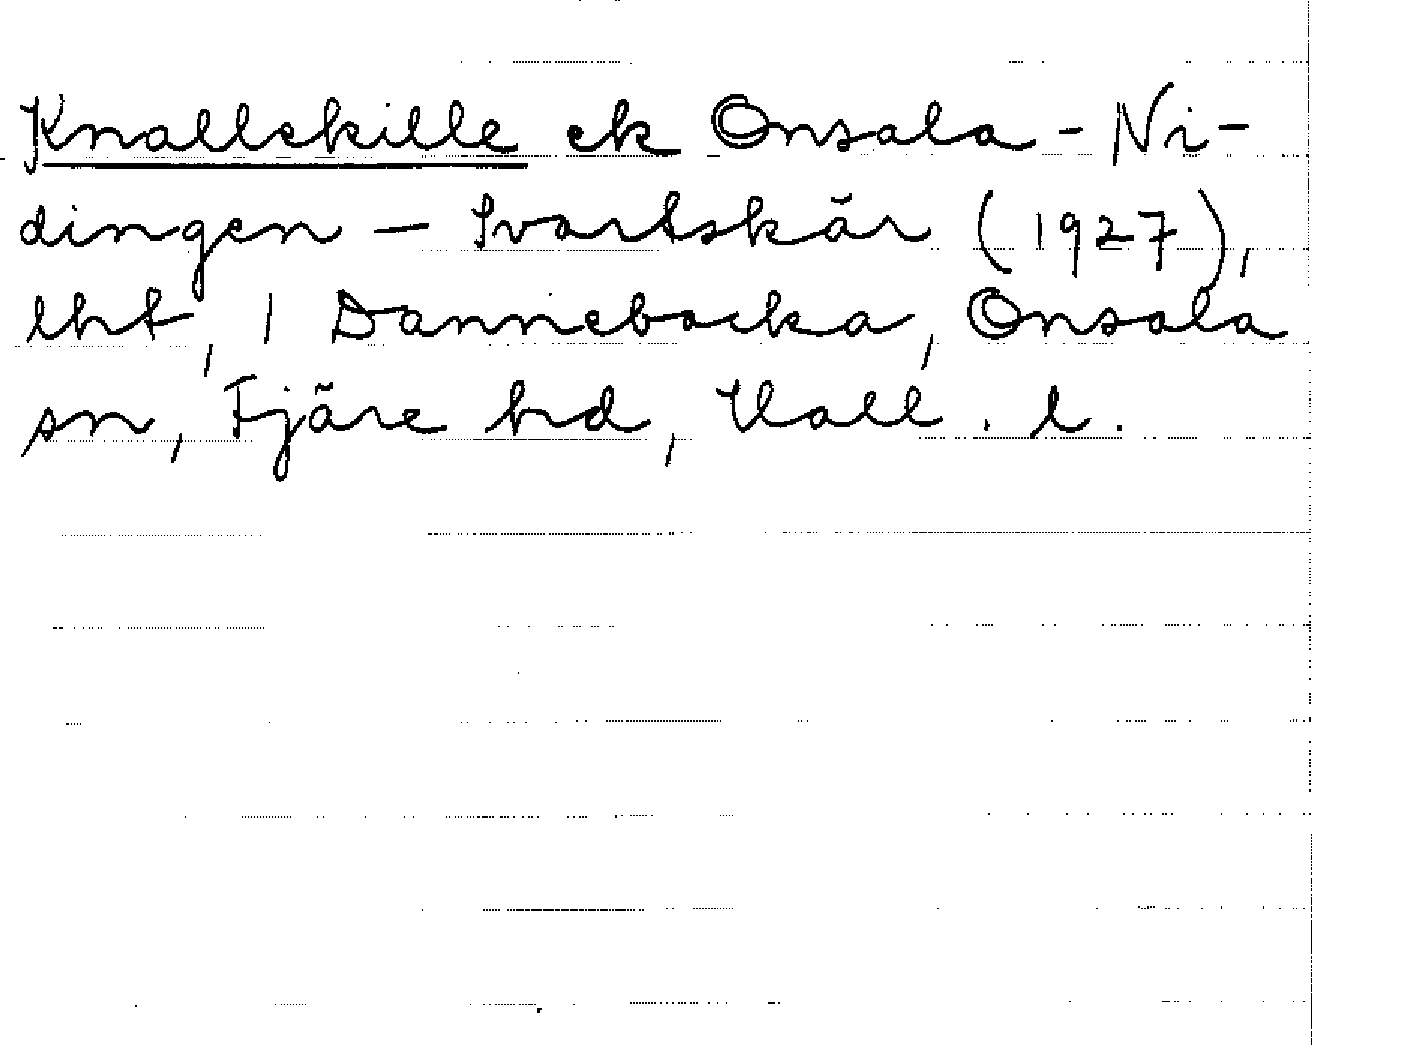 Knallekille ek Onsala - Ni-
dingen - Svartskär (1927),
lht, 1 Dannebacka, Onsala
sn, Fjäre hd, Hall. l.